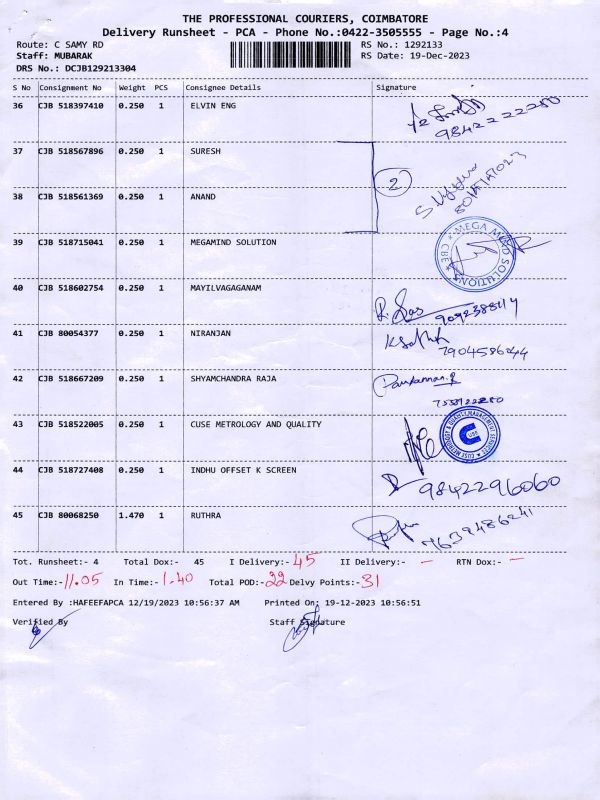 THE PROFESSIONAL COURIERS, COIMBATORE
Delivery Runsheet - PCA - Phone No.:0422-3505555 - Page No.:4
Route: C SAMY RD RS No.: 1292133
Staff: MUBARAK RS Date: 19-Dec-2023
DRS No.: DCJB129213304
S No Consignment No Weight PCS Consignee Details Signature
36 CJB 518397410 0.250 1 ELVIN ENG
9842222280
37 CJB 518567896 0.250 1 SURESH
2
38 CJB 518561369 0.250 1 ANAND
39 CJB 518715041 0.250 1 MEGAMIND SOLUTION
MEGA MIND SOLUTIONS CBE
40 CJB 518602754 0.250 1 MAYILVAGAGANAM
41 CJB 80054377 0.250 1 NIRANJAN
7904586244
42 CJB 518667209 0.250 1 SHYAMCHANDRA RAJA
43 CJB 518522005 0.250 1 CUSE METROLOGY AND QUALITY
44 CJB 518727408 0.250 1 INDHU OFFSET K SCREEN
9842296060
45 CJB 80068250 1.470 1 RUTHRA
7639486241
Tot. Runsheet:- 4 Total Dox:- 45 I Delivery:- 45 II Delivery:- — RTN Dox:- —
Out Time:- 11.05 In Time:- 1.40 Total POD:- 22 Delvy Points:- 31
Entered By :HAFEEFAPCA 12/19/2023 10:56:37 AM Printed On: 19-12-2023 10:56:51
Verified By Staff Signature